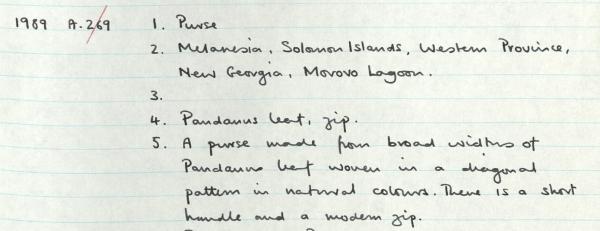 1989 A.269 1. Purse
2. Melanesia, Solomon Islands, Western Province,
New Georgia, Morovo Lagoon.
3.
4. Pandanus leaf, zip.
5. A purse made from broad widths of
Pandanus leaf woven in a diagonal
pattern in natural colours. There is a short
handle and a modern zip.